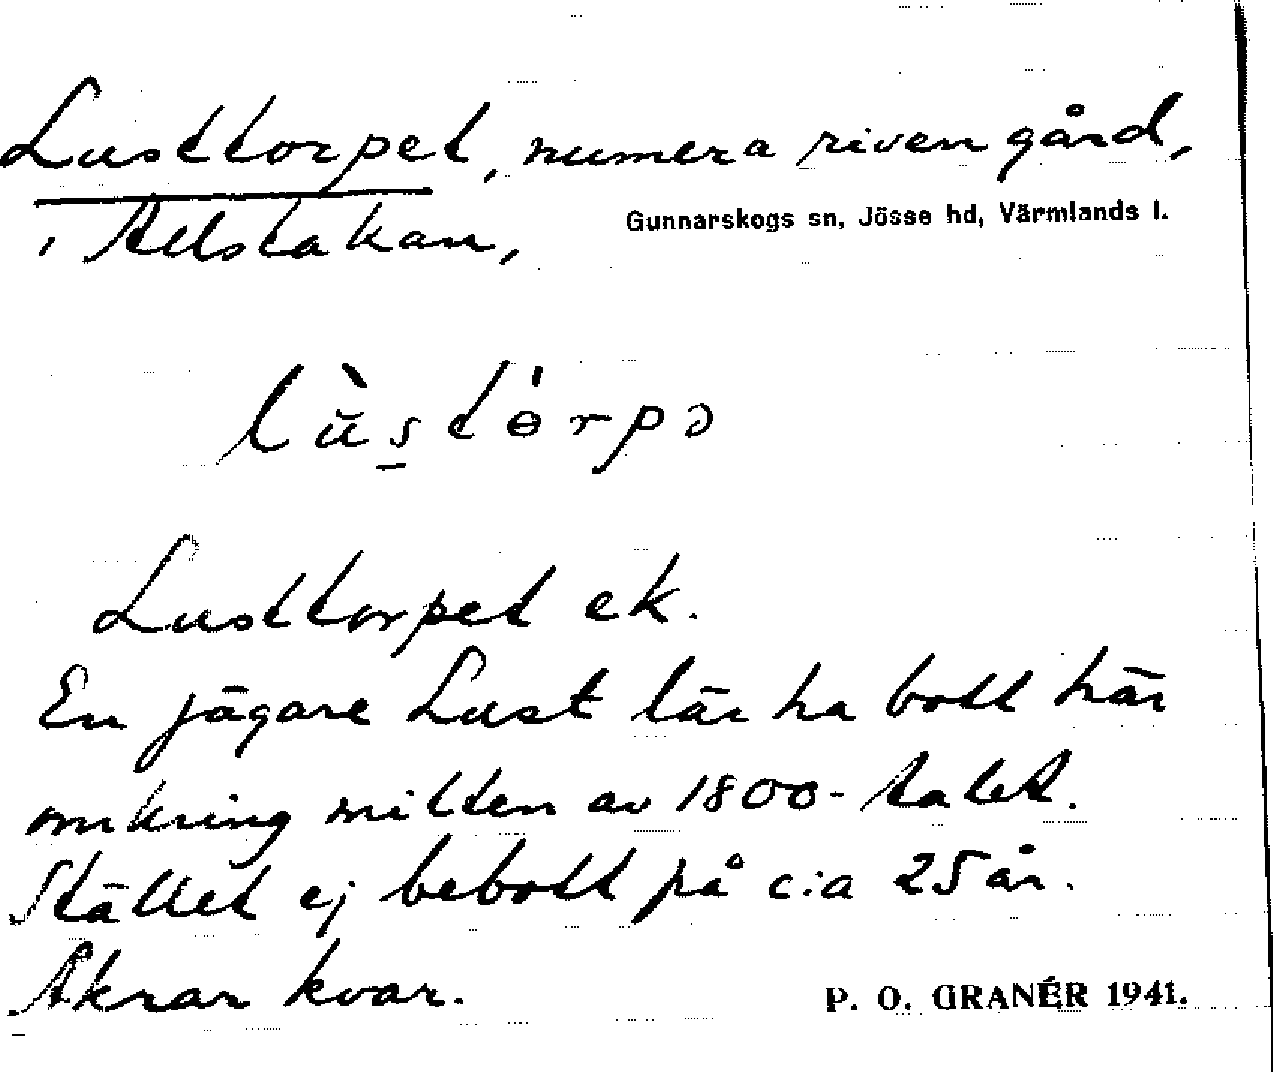 Lusttorpet, numera riven gård,
i Adstakan,
Gunnarskogs sn, Jösse hd, Värmlands l.
lùstórpə
Lusttorpet ek.
En jägare Lust lär ha bott här
omkring mitten av 1800-talet.
Stället ej bebott på c:a 25 år.
Åkrar kvar.
P. O. GRANÉR 1941.